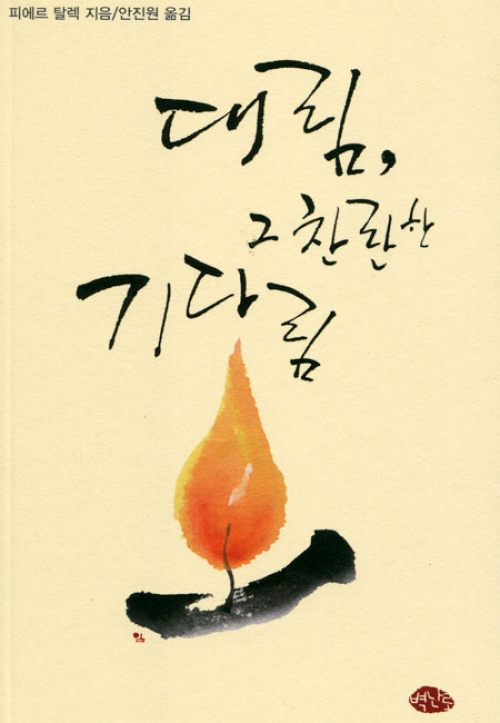 피에르 탈렉 지음/안진원 옮김
대림,
그 찬란한
기다림
벽난로